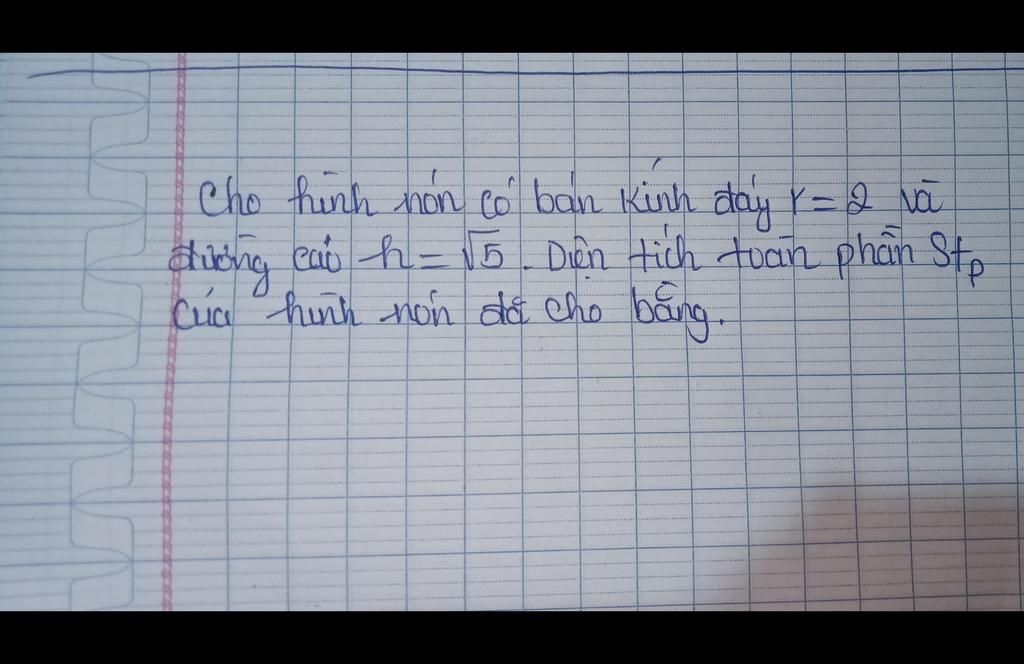 Cho hình nón có bán kính đáy r = 2 và
đường cao h = √5. Diện tích toàn phần Stp
của hình nón đã cho bằng.